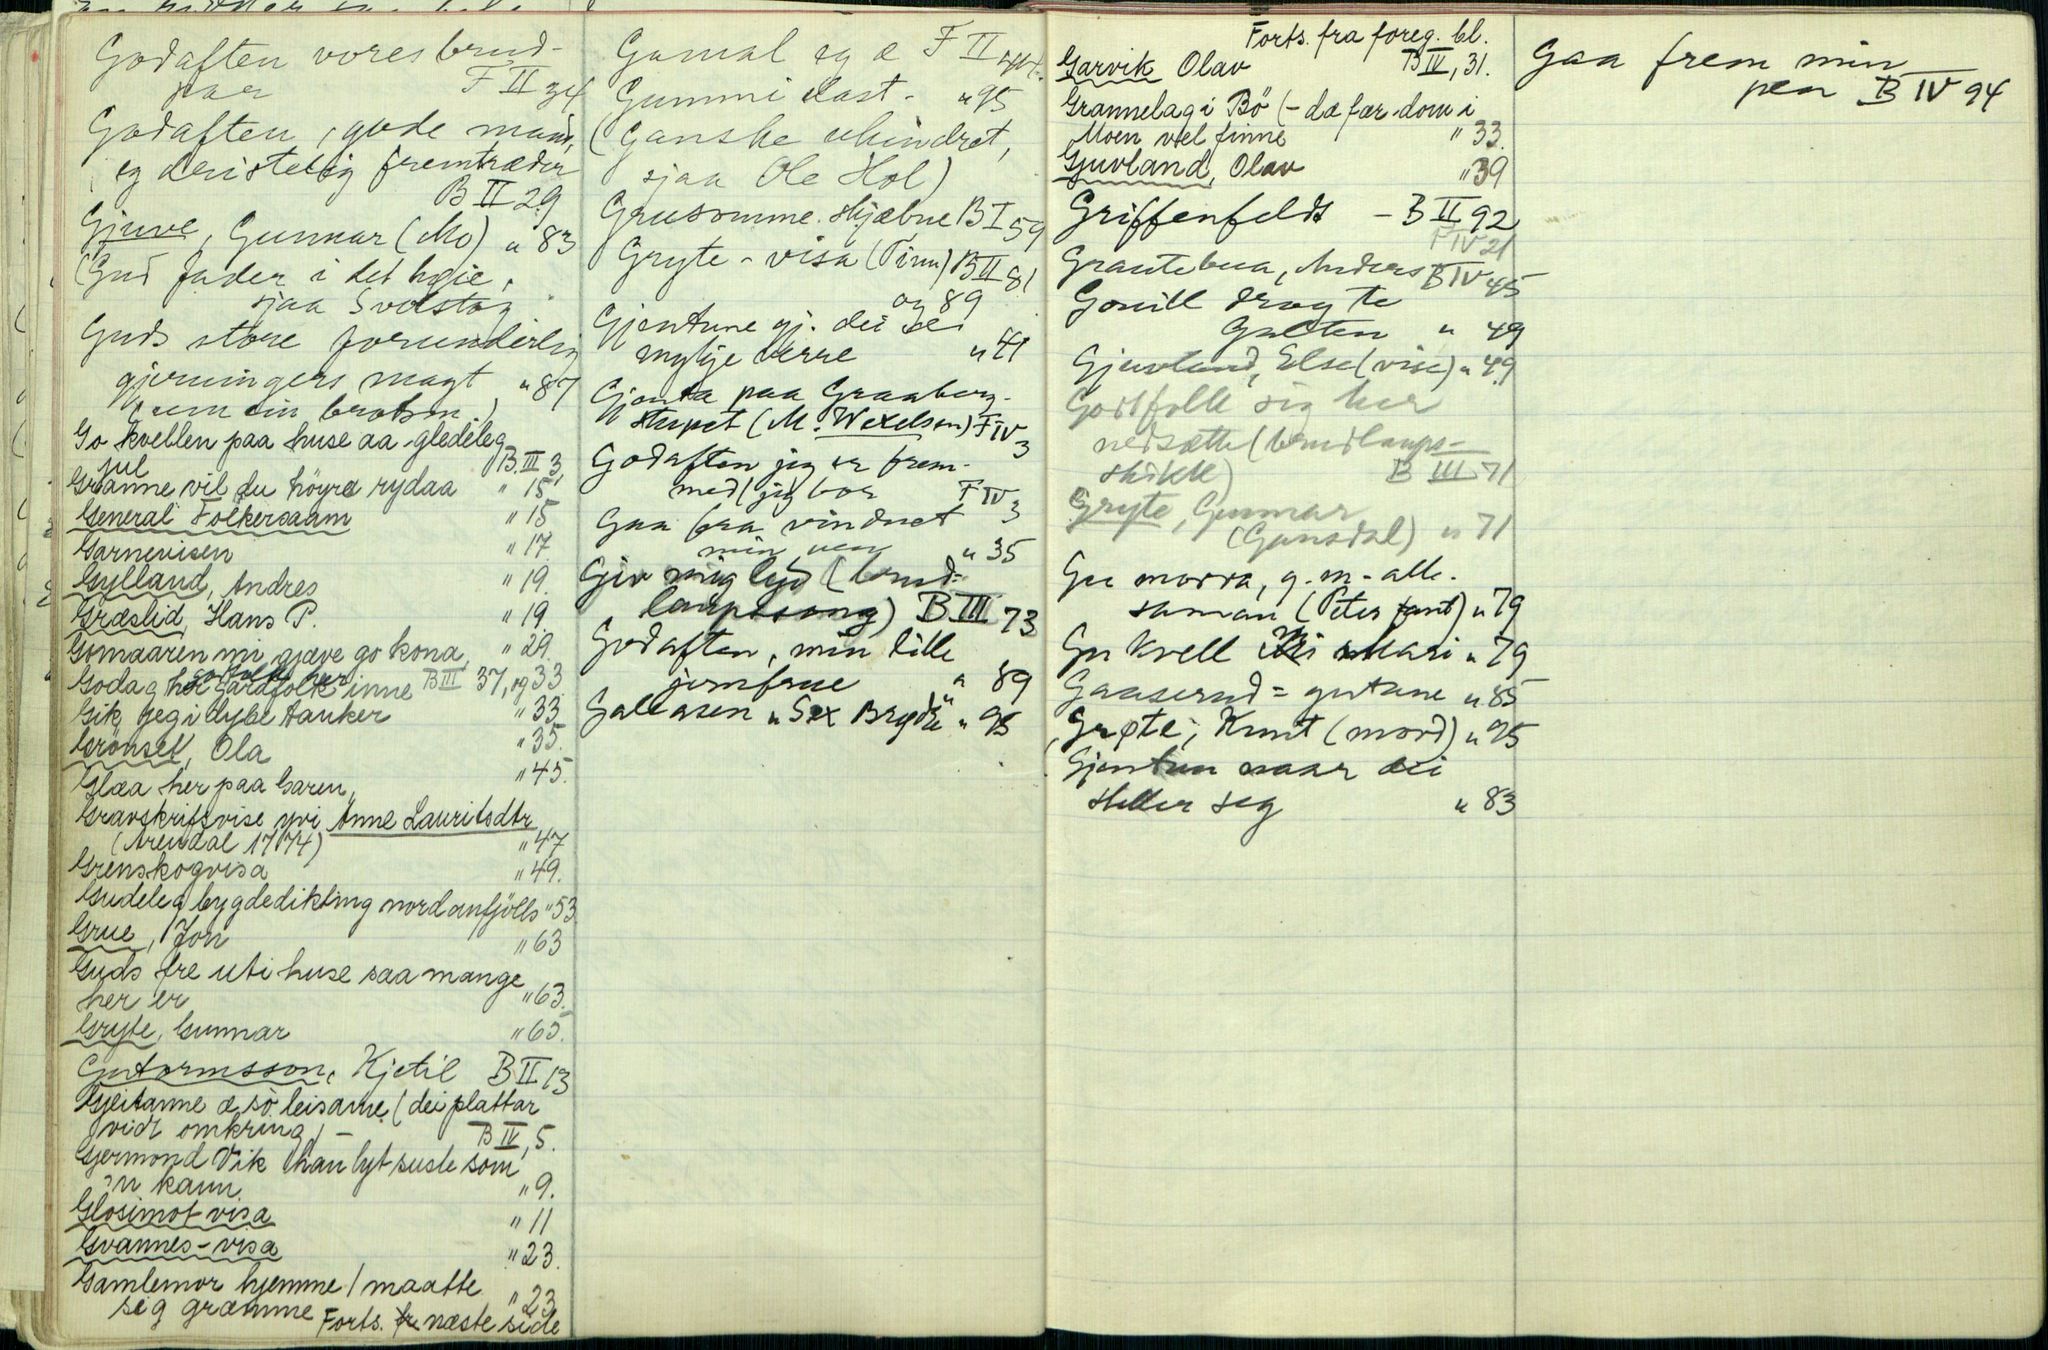 Godaften vores brud-
par F II 34
Godaften, gode mænd,
eg dristelig fremtræder
B II 29
Gjuve, Gunnar (Mo) " 83
(Gud fader i det høie,
sjaa Svolstog
Guds store forunderlig
gjerningers magt " 87
Go kvellen paa huse aa gledeleg
jul B. III 3
Granne vil du höyra rydaa " 15
General Folkersaam " 15
Garnevisen " 17
Gylland, Andres " 19.
Græslid, Hans P. " 19.
Gomaaren mi gjæve go kona, " 29.
godfolk her
Godag her gardfolk inne B III 37, og 33
Gik jeg i dybe tanker " 33.
Grönset, Ola " 35.
Glæa her paa garen, " 45.
Gravskriftsvise yvi Anne Lauritsdtr
(Arendal 1774) " 47
Grenskogvisa " 49.
Gudeleg bygdedikting nordanfjölls " 53
Grue, Jon " 63
Guds fre uti huse saa mange
her er " 63.
Gryte, Gunnar " 65.
Gutormsson, Kjetil B II 13
Gjeitanne æ so leisame (dei plattar
vidt omkring) - B IV, 5.
Gjermond Vik han lyt suste som
'n kann. " 9.
Glosimot visa " 11
Gvannes-visa " 23.
Gamlemor hjemme / maatte
sig græmme " 23
Forts. næste side
Gamal eg æ F II 44.
Gummi elast- " 95
(Ganske uhindret,
sjaa Ole Hol)
Grusomme skjæbne B I 59
Gryte-visa (Tinn) B II 81
og 89
Gjentune gj. dei se
mykje verre " 41
Gjenta paa Graaberg-
stupet (M. Wexelsen) F IV 3
Godaften jeg er frem-
med (jeg bor F IV 3
Gaa fra vinduet
min ven " 35
Giv mig lyd (brud-
laupssong) B III 73
Godaften, min lille
jomfrue " 89
Galeasen "Sex Brydre" " 95
Forts. fra foreg. bl.
Garvik Olav B IV, 31.
Grannelag i Bö (- dæ fær dom i
Moen vel finne " 33.
Gjuvland, Olav " 39
Griffenfeldt - B II 92
F IV 21
Grautebua, Anders B IV 45
Gonill drog te
Galten " 49
Gjuvland, Else (vise) " 49
Godtfolk sig her
nedsætte (brudlaups-
skikk) B III 71
Gryte, Gunnar
(Gunsdal) " 71
Gu morra, g. m. alle.
saman (Peter fant) " 79
Gu kvell mi Mari " 79
Gaaserud-gutane " 85
Grøtte, Knut (mord) " 95
Gjentun naar dei
steller seg " 83
Gaa frem min
pen B IV 94